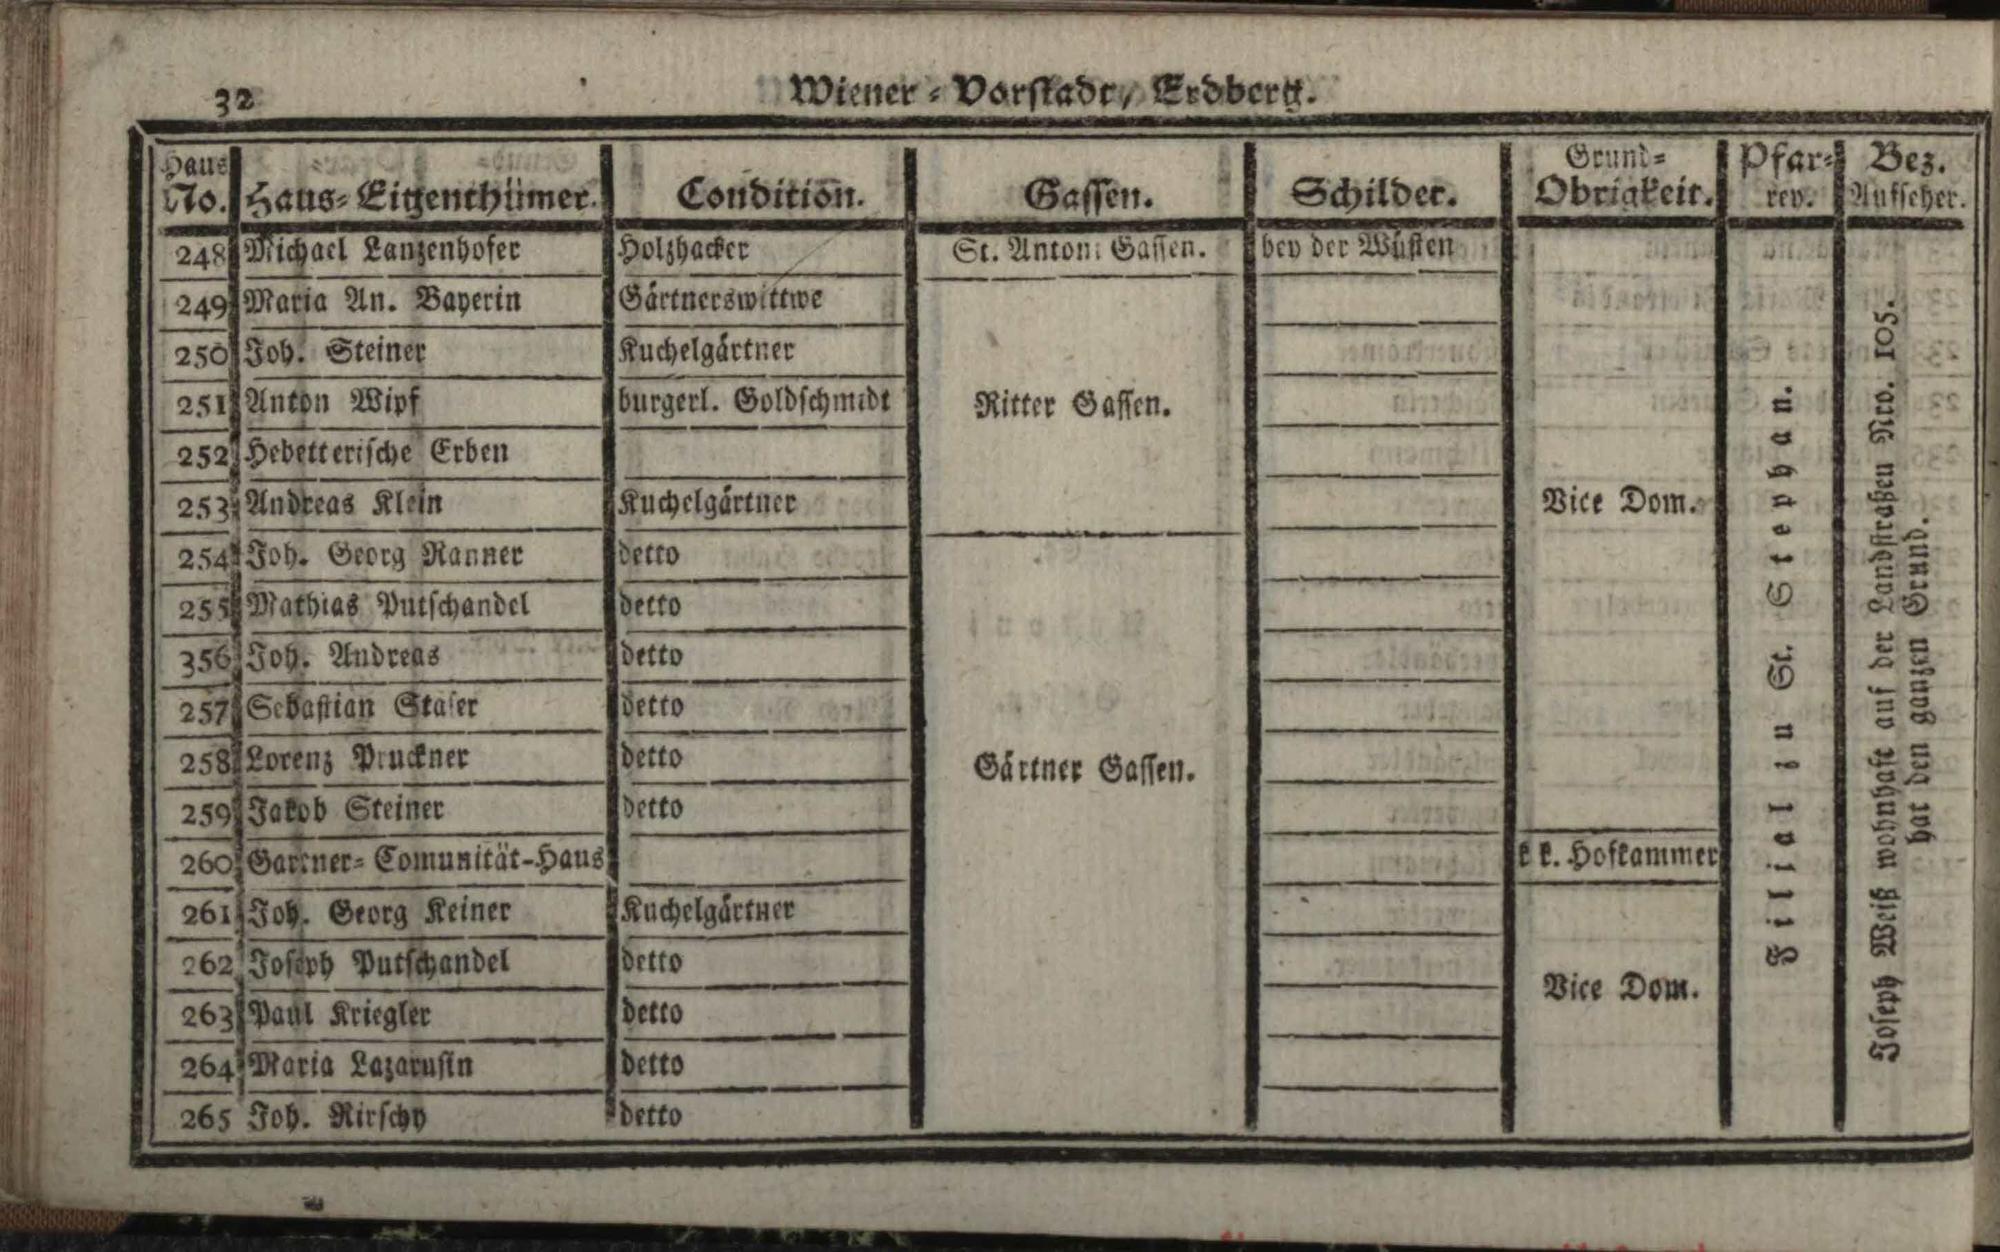 32
Wiener-Vorstadt, Erdberg.
Haus No. Haus-Eigenthümer. Condition. Gassen. Schilder. Grund-Obrigkeit. Pfar-rey. Bez. Aufseher.
248 Michael Lanzenhofer Holzhacker St. Antoni Gassen. bey der Wüsten
249 Maria An. Bayerin Gärtnerswittwe
250 Joh. Steiner Kuchelgärtner
251 Anton Wipf burgerl. Goldschmidt Ritter Gassen.
252 Hebetterische Erben
253 Andreas Klein Kuchelgärtner Vice Dom.
254 Joh. Georg Ranner detto
255 Mathias Putschandel detto
356 Joh. Andreas detto
257 Sebastian Staser detto
258 Lorenz Pruckner detto Gärtner Gassen.
259 Jakob Steiner detto
260 Gartner-Comunität-Haus k k. Hofkammer
261 Joh. Georg Keiner Kuchelgärtner
262 Joseph Putschandel detto Vice Dom.
263 Paul Kriegler detto
264 Maria Lazarusin detto
265 Joh. Rirschy detto
Filial zu St. Stephan.
Joseph Weiß wohnhaft auf der Landstraßen Nro. 105.
hat den ganzen Grund.